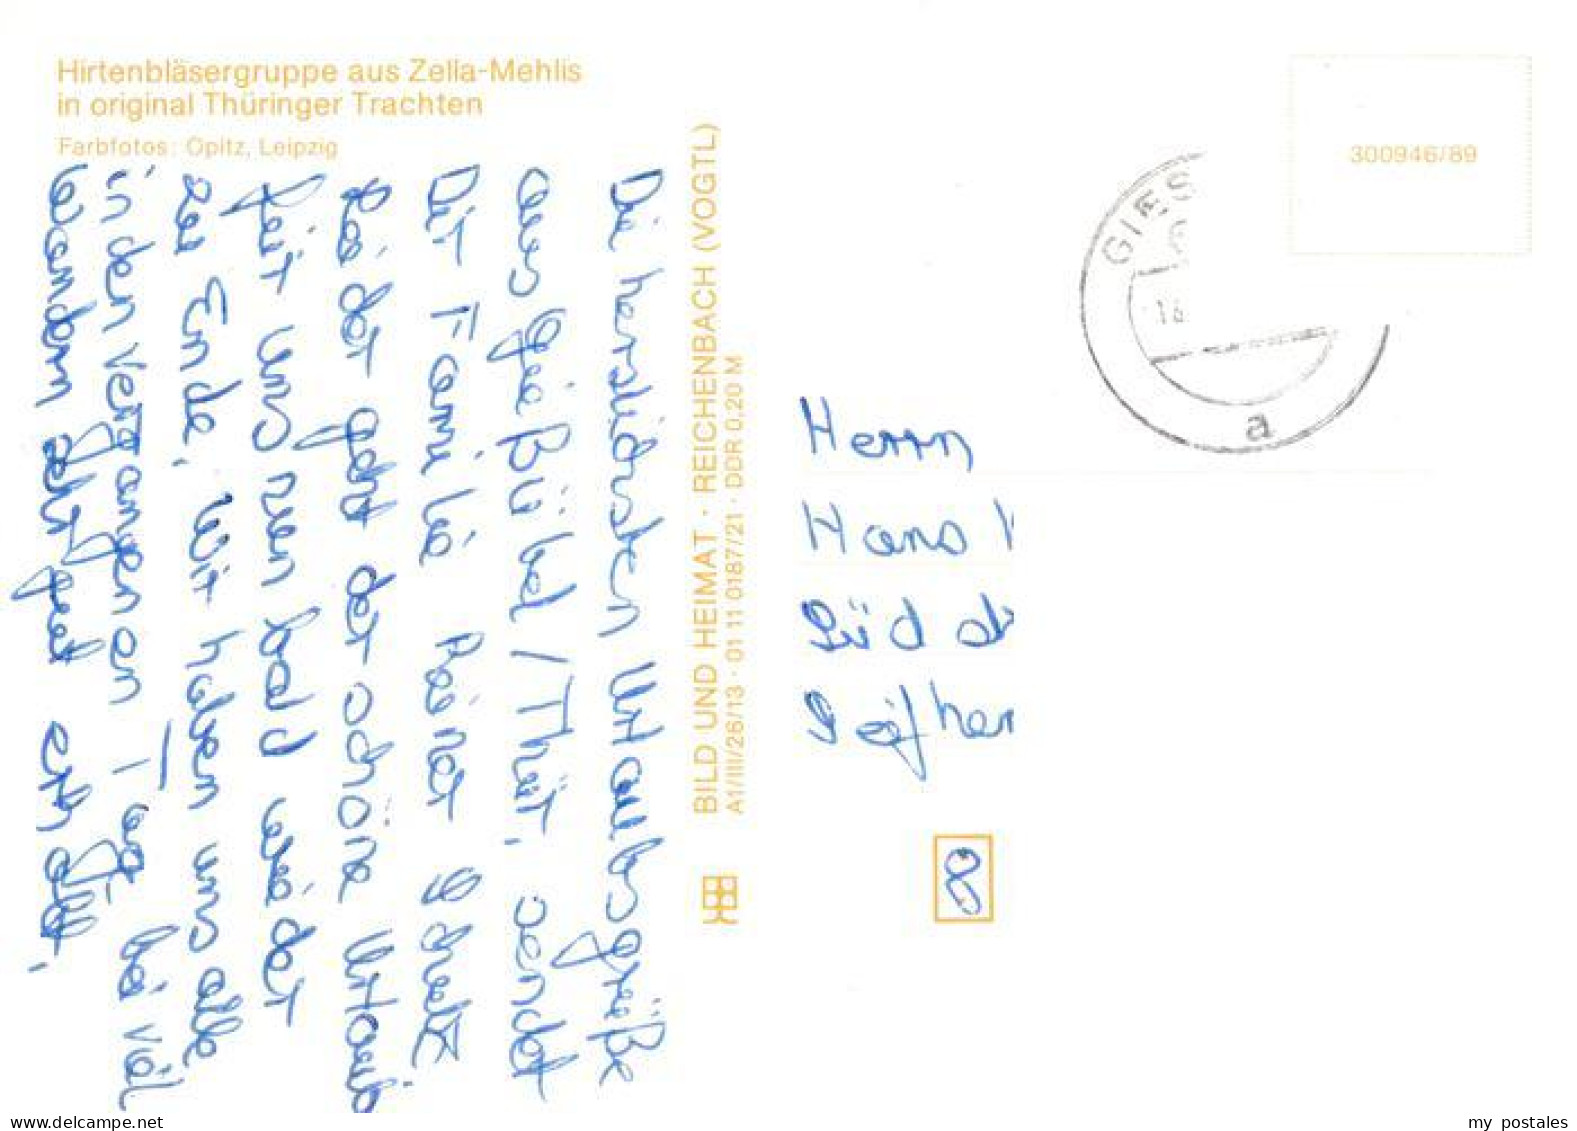 Hirtenbläsergruppe aus Zella-Mehlis
in original Thüringer Trachten
Farbfotos: Opitz, Leipzig
Die herzlichsten Urlaubsgrüße
aus Gießübel / Thür. sendet
Dir Familie Reiner
Leider geht der schöne Urlaub
für uns nun bald wieder
zu Ende. Wir haben uns alle
in den vergangenen Tag bei viel
wandern sehr gut erholt.
BILD UND HEIMAT · REICHENBACH (VOGTL)
A1/III/26/13 · 01 11 0187/21 · DDR 0,20 M
300946/89
GIES
a
Herrn
Hans
Süd
Seifhen
8
hippostcard.com
my postales